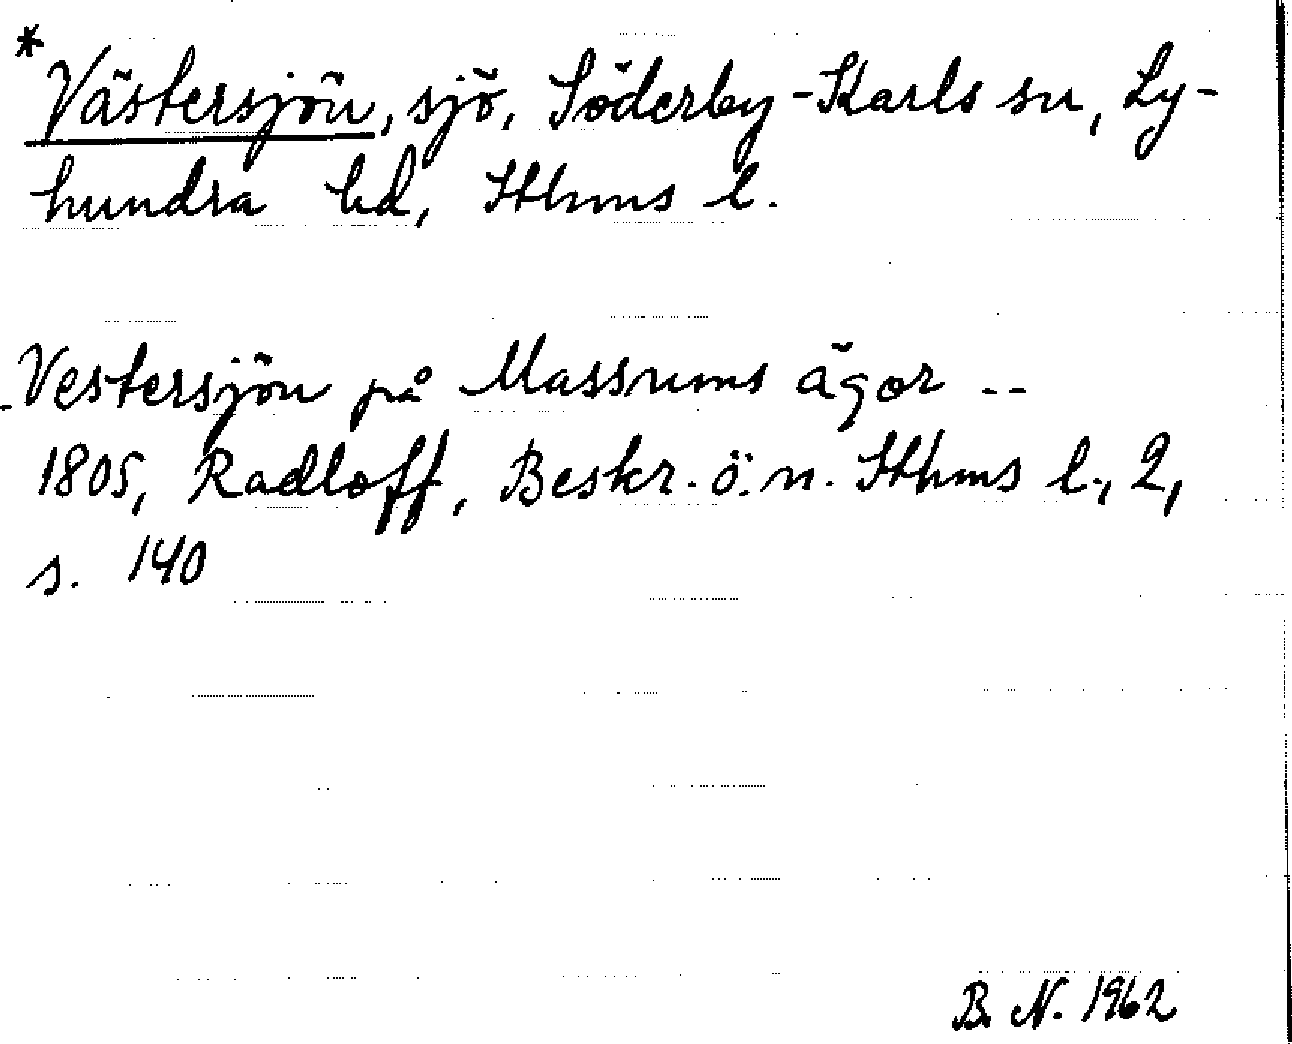 * Västersjön, sjö, Söderby-Karls sn, Ly-
hundra hd, Sthms l.
Vestersjön på Massums ägor --
1805, Radloff, Beskr. ö. n. Sthms l., 2,
s. 140
B. N. 1962